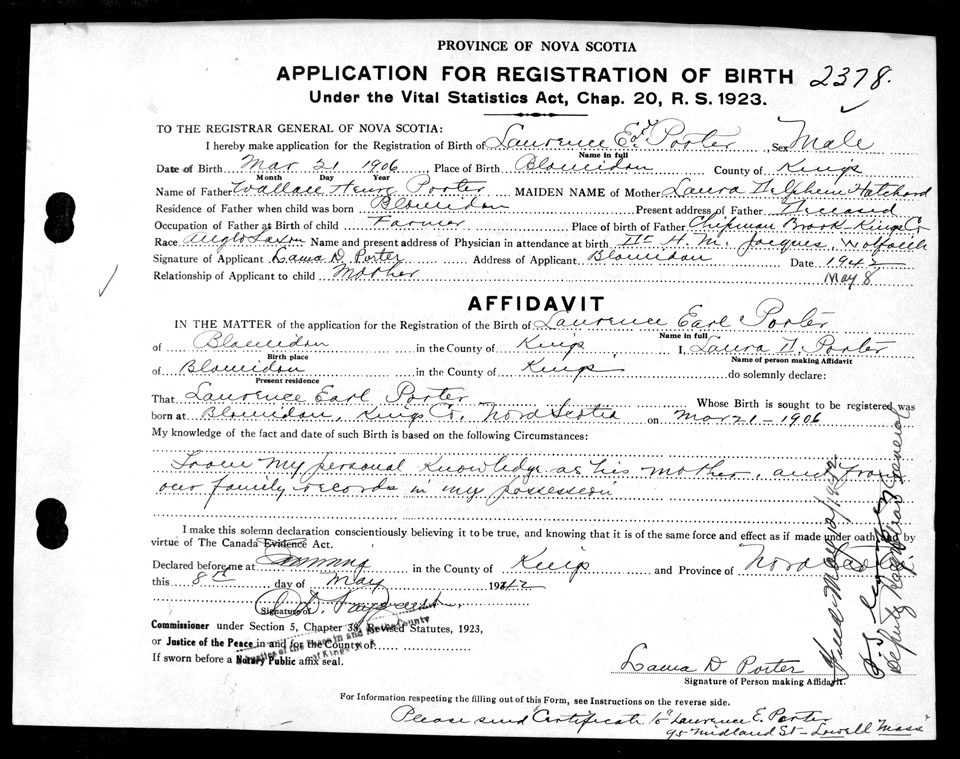 PROVINCE OF NOVA SCOTIA
APPLICATION FOR REGISTRATION OF BIRTH 2378.
Under the Vital Statistics Act, Chap. 20, R. S. 1923.
TO THE REGISTRAR GENERAL OF NOVA SCOTIA:
I hereby make application for the Registration of Birth of Laurence Erl Porter, Sex Male
Name in full
Date of Birth Mar 21 1906 Place of Birth Blomidon County of Kings
Month Day Year
Name of Father Wallace Henre Porter MAIDEN NAME of Mother Laura Delphene Hatchard
Residence of Father when child was born Blomidon Present address of Father Deceased
Occupation of Father at Birth of child Farmer Place of birth of Father Chipman Brook Kings Co
Race Anglo Saxon Name and present address of Physician in attendance at birth H. M. Jacques, Wolfville
Signature of Applicant Laura D. Porter Address of Applicant Blomidon Date 1942
Relationship of Applicant to child Mother May 8
AFFIDAVIT
IN THE MATTER of the application for the Registration of the Birth of Laurence Earl Porter
Name in full
of Blomidon in the County of Kings I, Laura D. Porter
Birth place Name of person making Affidavit
of Blomidon in the County of Kings do solemnly declare:
Present residence
That Laurence Earl Porter Whose Birth is sought to be registered was
born at Blomidon, Kings Co, Nova Scotia on Mar 21 - 1906
My knowledge of the fact and date of such Birth is based on the following Circumstances:
From my personal knowledge as his mother, and from
our family records in my possession
I make this solemn declaration conscientiously believing it to be true, and knowing that it is of the same force and effect as if made under oath and by
virtue of The Canada Evidence Act.
Declared before me at Canning in the County of Kings and Province of Nova Scotia
this 8th day of May 1942
Signature of
Commissioner under Section 5, Chapter 38, Revised Statutes, 1923,
or Justice of the Peace in and for the County of
Justice of the Peace in and for the County
of Kings N. S.
If sworn before a Notary Public affix seal.
Laura D Porter
Signature of Person making Affidavit.
For Information respecting the filling out of this Form, see Instructions on the reverse side.
Please send "Certificate" to Laurence E. Porter
95 Midland St - Lowell Mass
Filed May 12/1942
Deputy Registrar General